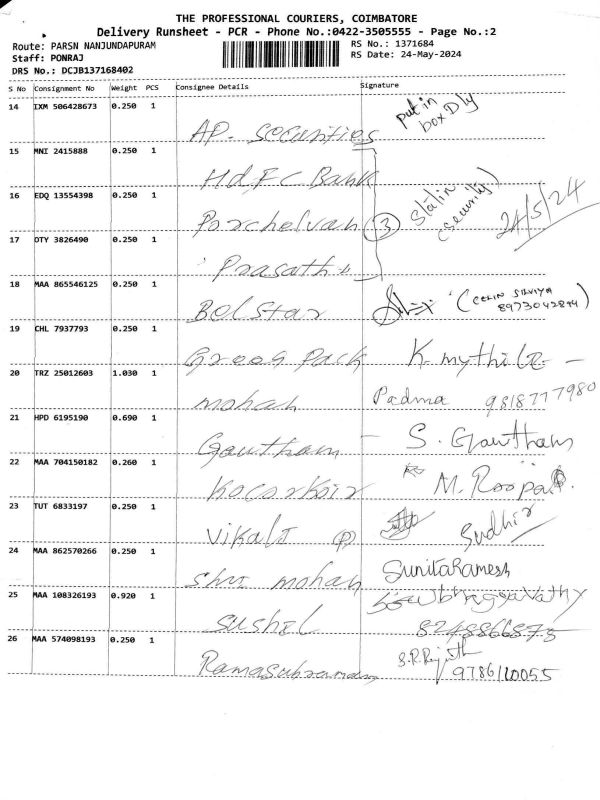 THE PROFESSIONAL COURIERS, COIMBATORE
Delivery Runsheet - PCR - Phone No.:0422-3505555 - Page No.:2
Route: PARSN NANJUNDAPURAM
RS No.: 1371684
Staff: PONRAJ
RS Date: 24-May-2024
DRS No.: DCJB137168402
S No Consignment No Weight PCS Consignee Details Signature
14 IXM 506428673 0.250 1
AP. Securities put in box Dly
15 MNI 2415888 0.250 1
HdFC Bank
16 EDQ 13554398 0.250 1
Porchelvan 3 Stalin (Security) 24/5/24
17 OTY 3826490 0.250 1
Prasath
18 MAA 865546125 0.250 1
BelStar (CELIN SILVIYA 8973042844)
19 CHL 7937793 0.250 1
Green Pack K. mythili
20 TRZ 25012603 1.030 1
mohan Padma 9818777980
21 HPD 6195190 0.690 1
Gowtham - S. Gowtham
22 MAA 704150182 0.260 1
M. Roopa
23 TUT 6833197 0.250 1
Vikal P Sudhir
24 MAA 862570266 0.250 1
Shri mohan Sunita Ramesh
25 MAA 108326193 0.920 1
Sushil Sowbhagyavathy 8248866873
26 MAA 574098193 0.250 1
Ramasubraman S.R. Ranjith 9786110055